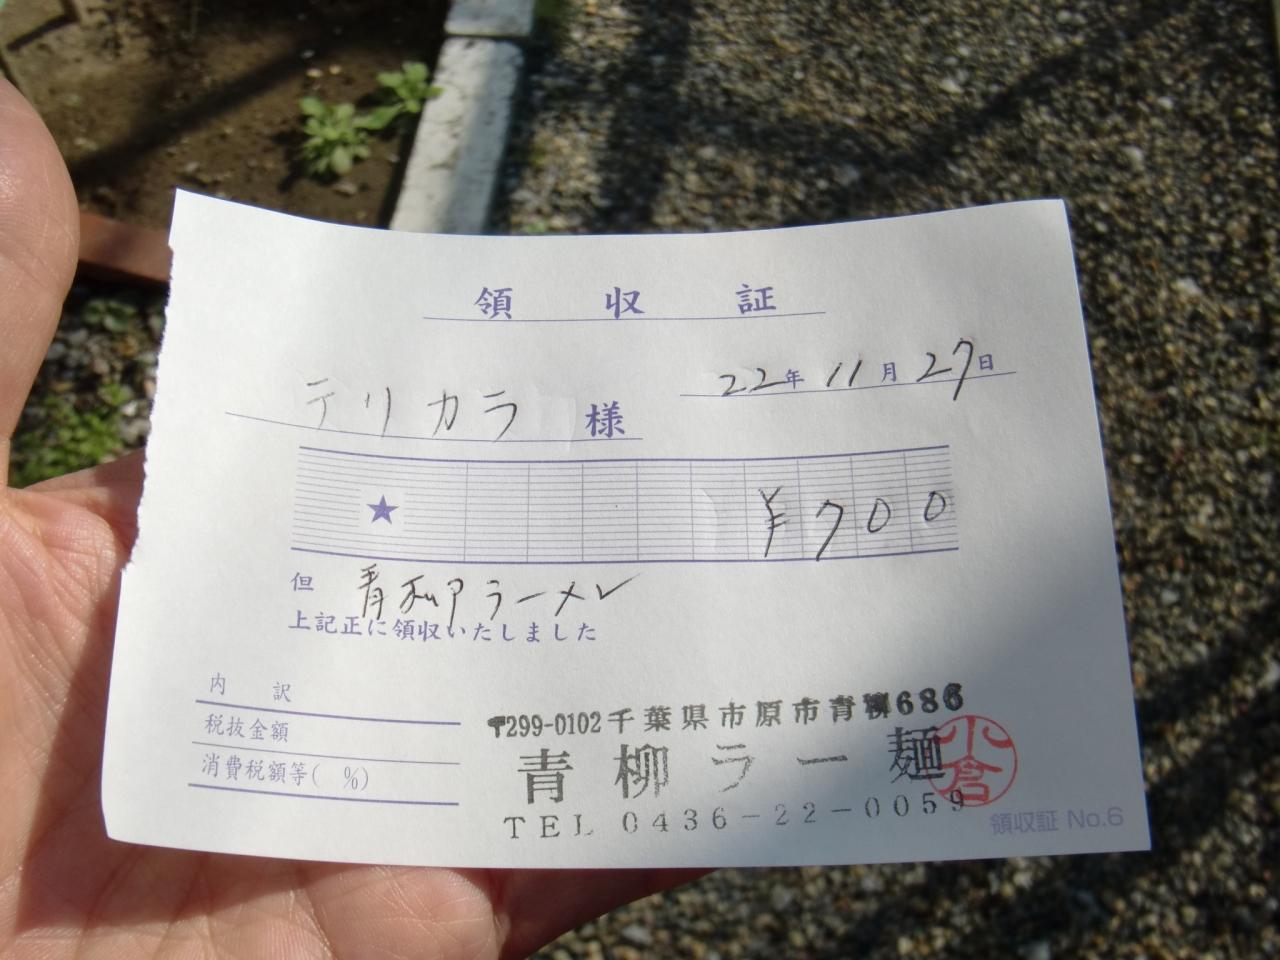 領収証
22年11月27日
テリカラ様
★ ¥700
但 青柳ラーメン
上記正に領収いたしました
内訳
税抜金額
消費税額等( %)
〒299-0102千葉県市原市青柳686
青柳ラー麺
小倉
TEL 0436-22-0059
領収証 No.6